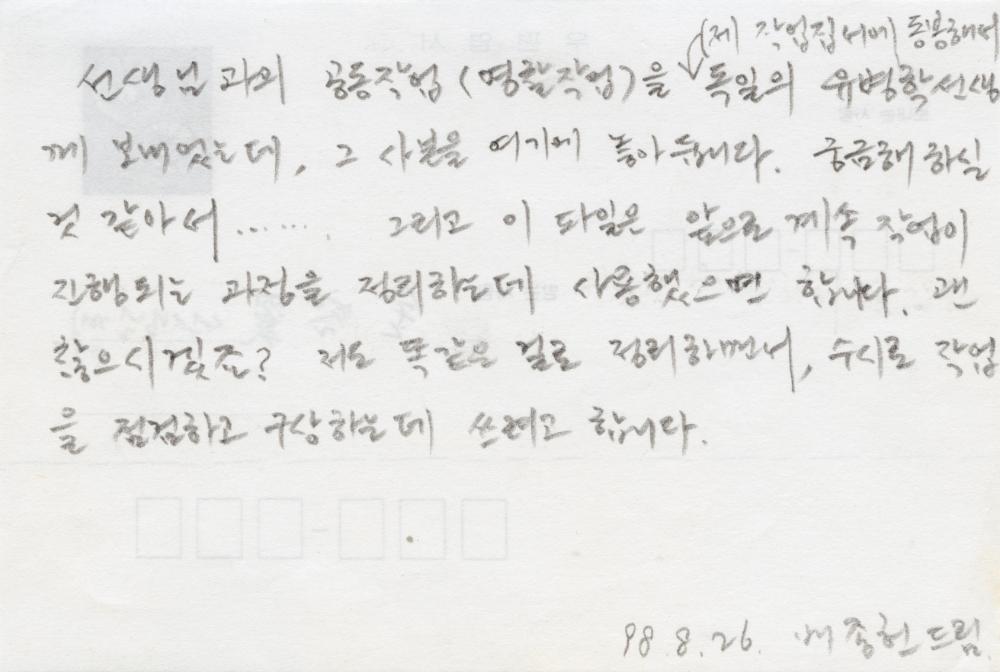 (제 작업집 서에 동봉해서
선생님과의 공동작업(명함작업)을 독일의 유병학선생
께 보내었는데, 그 사본을 여기에 놓아둡니다. 궁금해 하실
것 같아서 ....... 그리고 이 파일은 앞으로 계속 작업이
진행되는 과정을 정리하는데 사용했으면 합니다. 괜
찮으시겠죠? 저도 똑같은 걸로 정리하면서, 수시로 작업
을 점검하고 구상하는데 쓰려고 합니다.
98. 8. 26. 배종헌 드림.